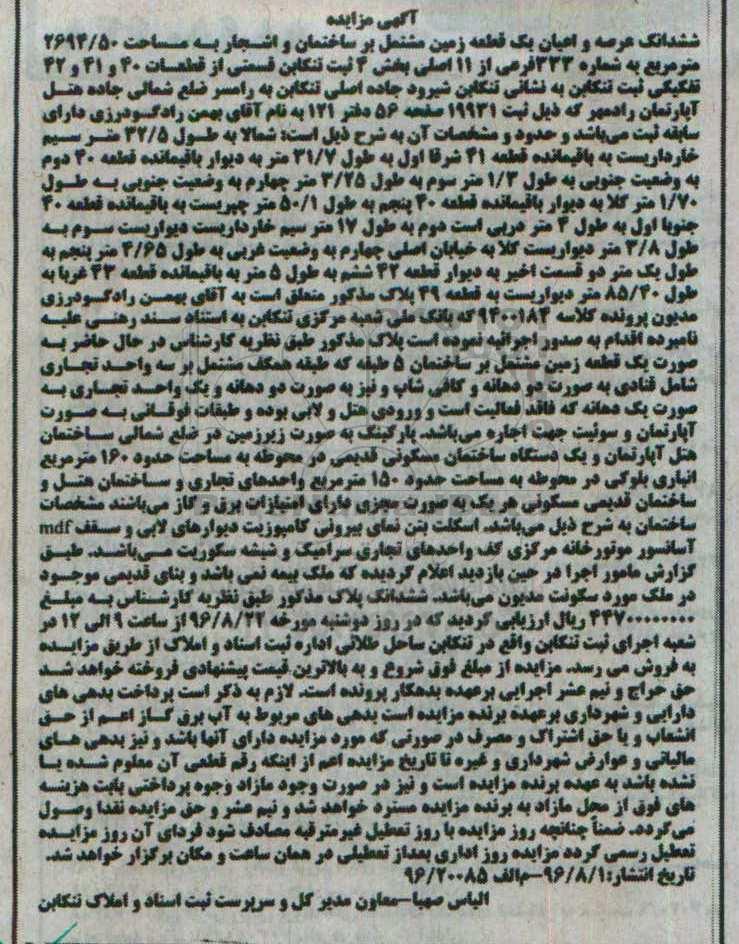 آگهی مزایده
ششدانگ عرصه و اعیان یک قطعه زمین مشتمل بر ساختمان و اشجار به مساحت ۲۶۹۴/۵۰
مترمربع به شماره ۳۳۳فرعی از ۱۱ اصلی بخش ۴ ثبت تنکابن قسمتی از قطعات ۴۰ و ۴۱ و ۴۲
تفکیکی ثبت تنکابن به نشانی تنکابن شیرود جاده اصلی تنکابن به رامسر ضلع شمالی جاده هتل
آپارتمان رادمهر که ذیل ثبت ۱۹۹۳۱ صفحه ۵۶ دفتر ۱۲۱ به نام آقای بهمن رادگودرزی دارای
سابقه ثبت می‌باشد و حدود و مشخصات آن به شرح ذیل است: شمالا به طول ۳۲/۵ متر سیم
خارداریست به باقیمانده قطعه ۴۱ شرقا اول به طول ۳۱/۷ متر به دیوار باقیمانده قطعه ۴۰ دوم
به وضعیت جنوبی به طول ۱/۳ متر سوم به طول ۳/۲۵ متر چهارم به وضعیت جنوبی به طول
۱/۷۰ متر کلا به دیوار باقیمانده قطعه ۴۰ پنجم به طول ۵۰/۱ متر چپریست به باقیمانده قطعه ۴۰
جنوبا اول به طول ۴ متر دربی است دوم به طول ۱۷ متر سیم خارداریست دیواریست سوم به
طول ۳/۸ متر دیواریست کلا به خیابان اصلی چهارم به وضعیت غربی به طول ۴/۶۵ متر پنجم به
طول یک متر دو قسمت اخیر به دیوار قطعه ۴۲ ششم به طول ۵ متر به باقیمانده قطعه ۴۳ غربا به
طول ۸۵/۴۰ متر دیواریست به قطعه ۴۹ پلاک مذکور متعلق است به آقای بهمن رادگودرزی
مدیون پرونده کلاسه ۹۴۰۰۱۸۴ که بانک ملی شعبه مرکزی تنکابن به استناد سند رهنی علیه
نامبرده اقدام به صدور اجرائیه نموده است پلاک مذکور طبق نظریه کارشناس در حال حاضر به
صورت یک قطعه زمین مشتمل بر ساختمان ۵ طبقه که طبقه همکف مشتمل بر سه واحد تجاری
شامل قنادی به صورت دو دهانه و کافی شاپ و نیز به صورت دو دهانه و یک واحد تجاری به
صورت یک دهانه که فاقد فعالیت است و ورودی هتل و لابی بوده و طبقات فوقانی به صورت
آپارتمان و سوئیت جهت اجاره می‌باشد. پارکینگ به صورت زیرزمین در ضلع شمالی ساختمان
هتل آپارتمان و یک دستگاه ساختمان مسکونی قدیمی در محوطه به مساحت حدود ۱۶۰ مترمربع
انباری بلوکی در محوطه به مساحت حدود ۱۵۰ مترمربع واحدهای تجاری و ساختمان هتل و
ساختمان قدیمی مسکونی هر یک به صورت مجزی دارای امتیازات برق و گاز می‌باشند مشخصات
ساختمان به شرح ذیل می‌باشد. اسکلت بتن نمای بیرونی کامپوزیت دیوارهای لابی و سقف mdf
آسانسور موتورخانه مرکزی کف واحدهای تجاری سرامیک و شیشه سکوریت می‌باشد. طبق
گزارش مامور اجرا در حین بازدید اعلام گردیده که ملک بیمه نمی باشد و بنای قدیمی موجود
در ملک مورد سکونت مدیون می‌باشد. ششدانگ پلاک مذکور طبق نظریه کارشناس به مبلغ
ریال ارزیابی گردید که در روز دوشنبه مورخه ۹۶/۸/۲۲ از ساعت ۹ الی ۱۲ در
شعبه اجرای ثبت تنکابن واقع در تنکابن ساحل طلائی اداره ثبت اسناد و املاک از طریق مزایده
به فروش می رسد. مزایده از مبلغ فوق شروع و به بالاترین قیمت پیشنهادی فروخته خواهد شد
حق حراج و نیم عشر اجرایی برعهده بدهکار پرونده است. لازم به ذکر است پرداخت بدهی های
دارایی و شهرداری برعهده برنده مزایده است بدهی های مربوط به آب برق گاز اعم از حق
انشعاب و یا حق اشتراک و مصرف در صورتی که مورد مزایده دارای آنها باشد و نیز بدهی های
مالیاتی و عوارض شهرداری و غیره تا تاریخ مزایده اعم از اینکه رقم قطعی آن معلوم شده یا
نشده باشد به عهده برنده مزایده است و نیز در صورت وجود مازاد وجوه پرداختی بابت هزینه
های فوق از محل مازاد به برنده مزایده مسترد خواهد شد و نیم عشر و حق مزایده نقدا وصول
می‌گردد. ضمناً چنانچه روز مزایده با روز تعطیل غیرمترقبه مصادف شود فردای آن روز مزایده
تعطیل رسمی گردد مزایده روز اداری بعداز تعطیلی در همان ساعت و مکان برگزار خواهد شد.
تاریخ انتشار: ۹۶/۸/۱-م‌الف ۹۶/۲۰۰۸۵
الیاس صهبا-معاون مدیر کل و سرپرست ثبت اسناد و املاک تنکابن